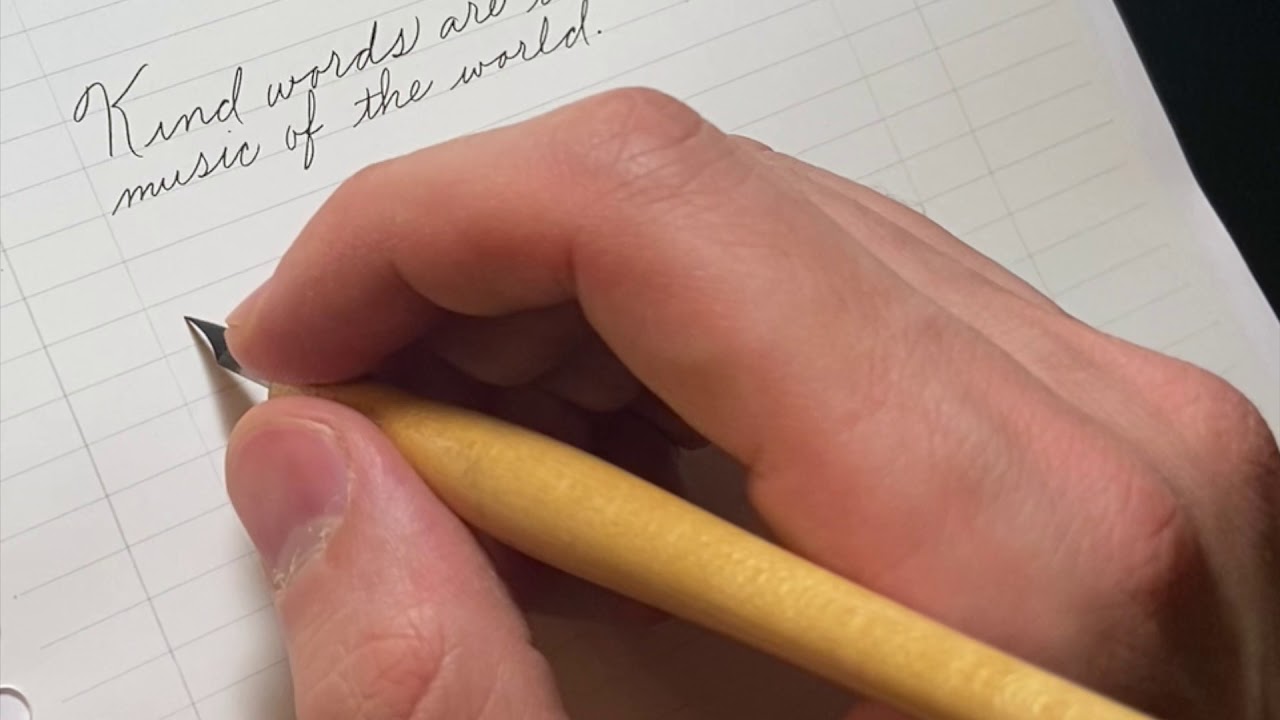 Kind words are
music of the world.